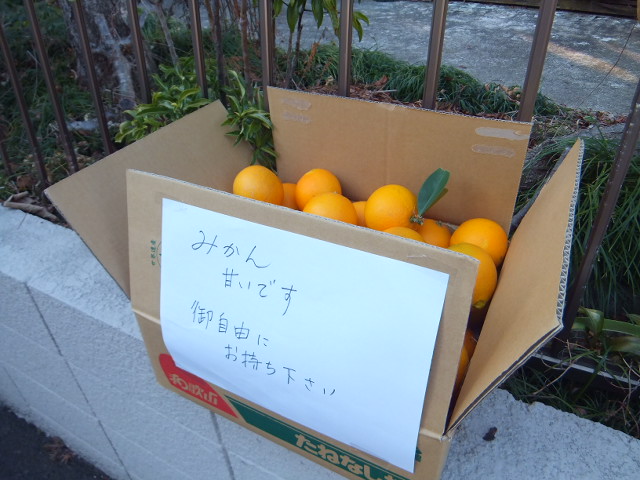 みかん
甘いです
御自由に
お持ち下さい
和歌山
たねなし